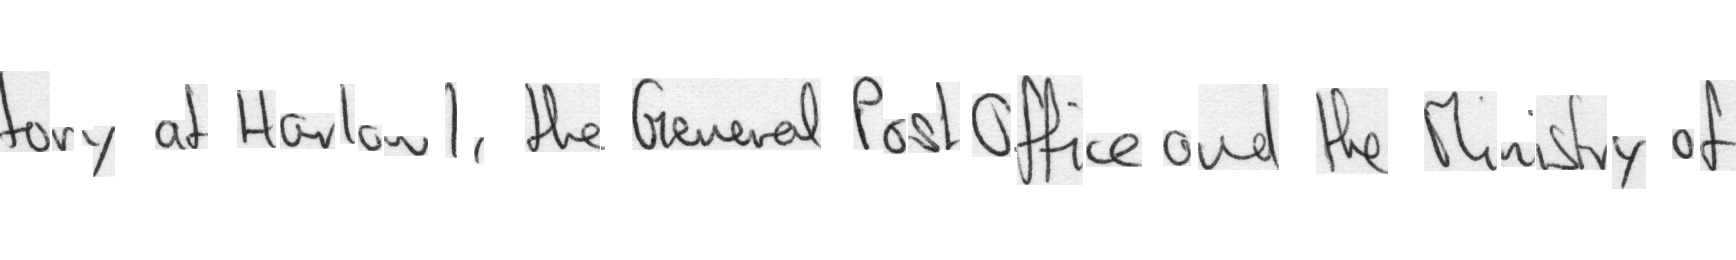 tory at Harlow ), the General Post Office and the Ministry of